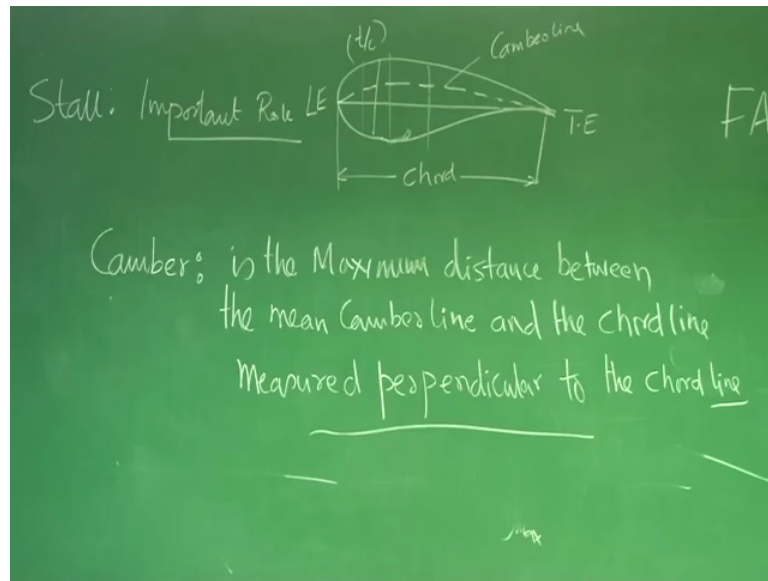 (t/c)
Camberline
Stall: Important Role LE
T.E
FA
Chord
Camber: is the Maximum distance between
the mean Camberline and the chordline
Measured perpendicular to the chord line